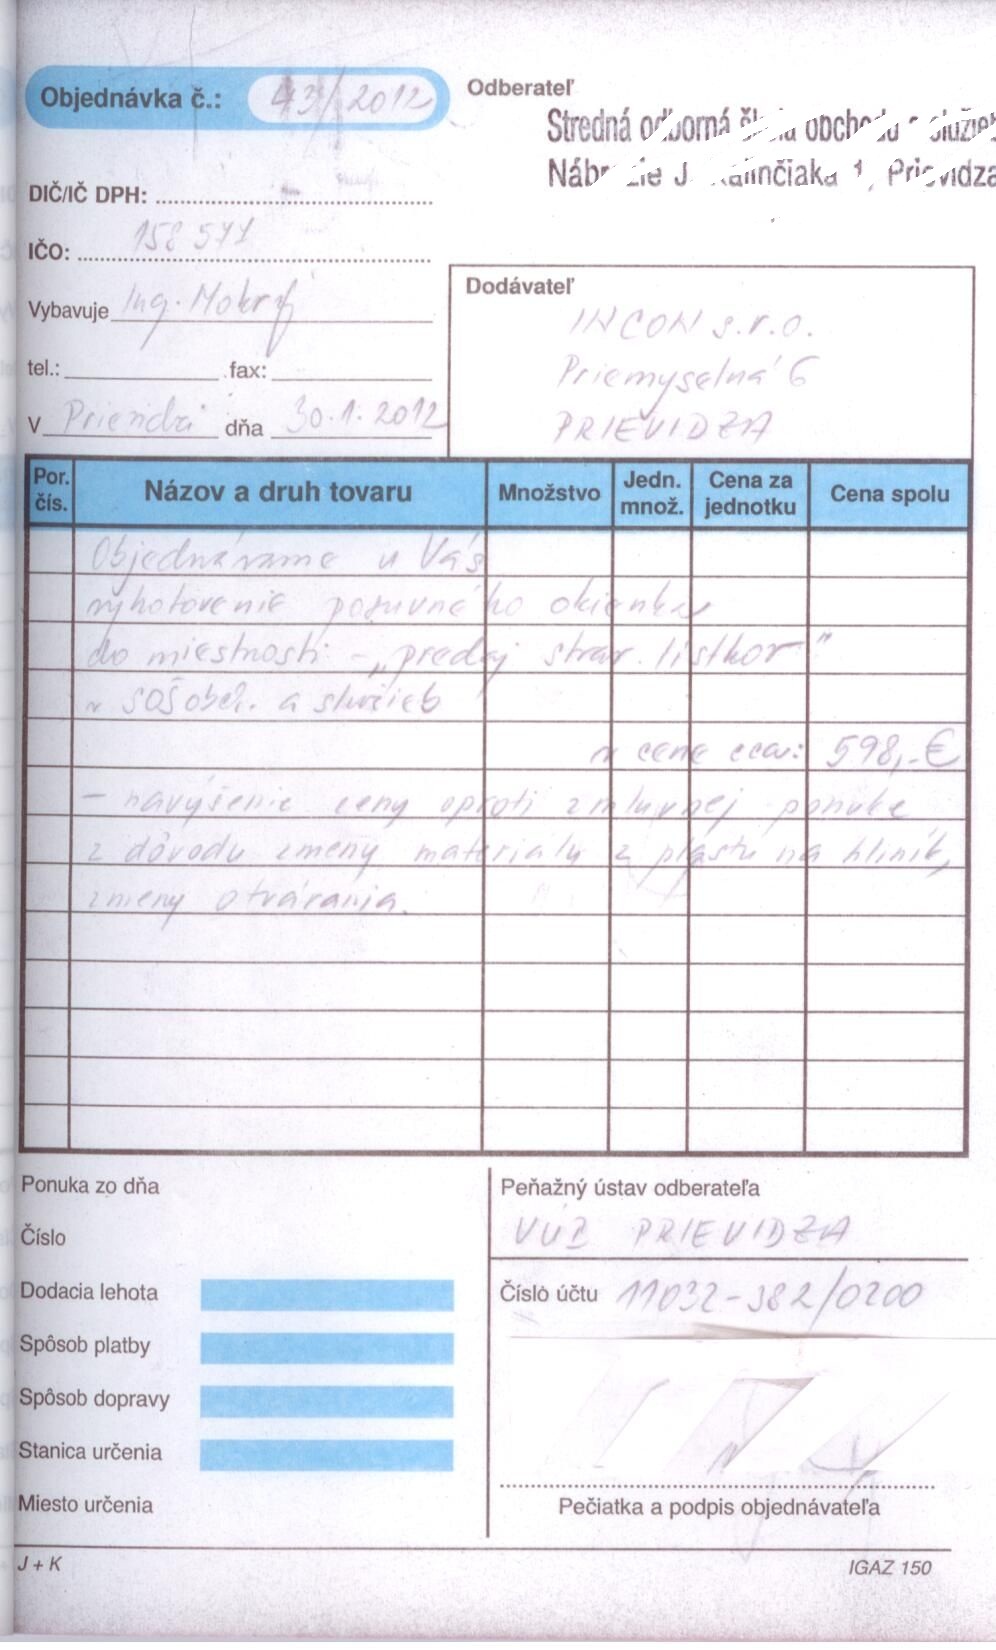 Objednávka č.: 43/2012
Odberateľ
Stredná odborná škola obchodu a služieb
Nábrežie J. Kalinčiaka 1, Prievidza
DIČ/IČ DPH:
IČO: 158 571
Vybavuje Ing. Mokrý
tel.: fax:
V Prievidzi dňa 30.1.2012
Dodávateľ
INCON s.r.o.
Priemyselná 6
PRIEVIDZA
Por. čís. Názov a druh tovaru Množstvo Jedn. množ. Cena za jednotku Cena spolu
Objednávame u Vás
vyhotovenie posuvného okienka
do miestnosti - „predaj strav. lístkov"
v SOŠ obch. a služieb
v cene cca: 598,-€
- navýšenie ceny oproti zmluvnej ponuke
z dôvodu zmeny materiálu z plastu na hliník,
zmeny otvárania.
Ponuka zo dňa
Číslo
Dodacia lehota
Spôsob platby
Spôsob dopravy
Stanica určenia
Miesto určenia
Peňažný ústav odberateľa
VÚB PRIEVIDZA
Číslo účtu 11032-382/0200
Pečiatka a podpis objednávateľa
J + K
IGAZ 150